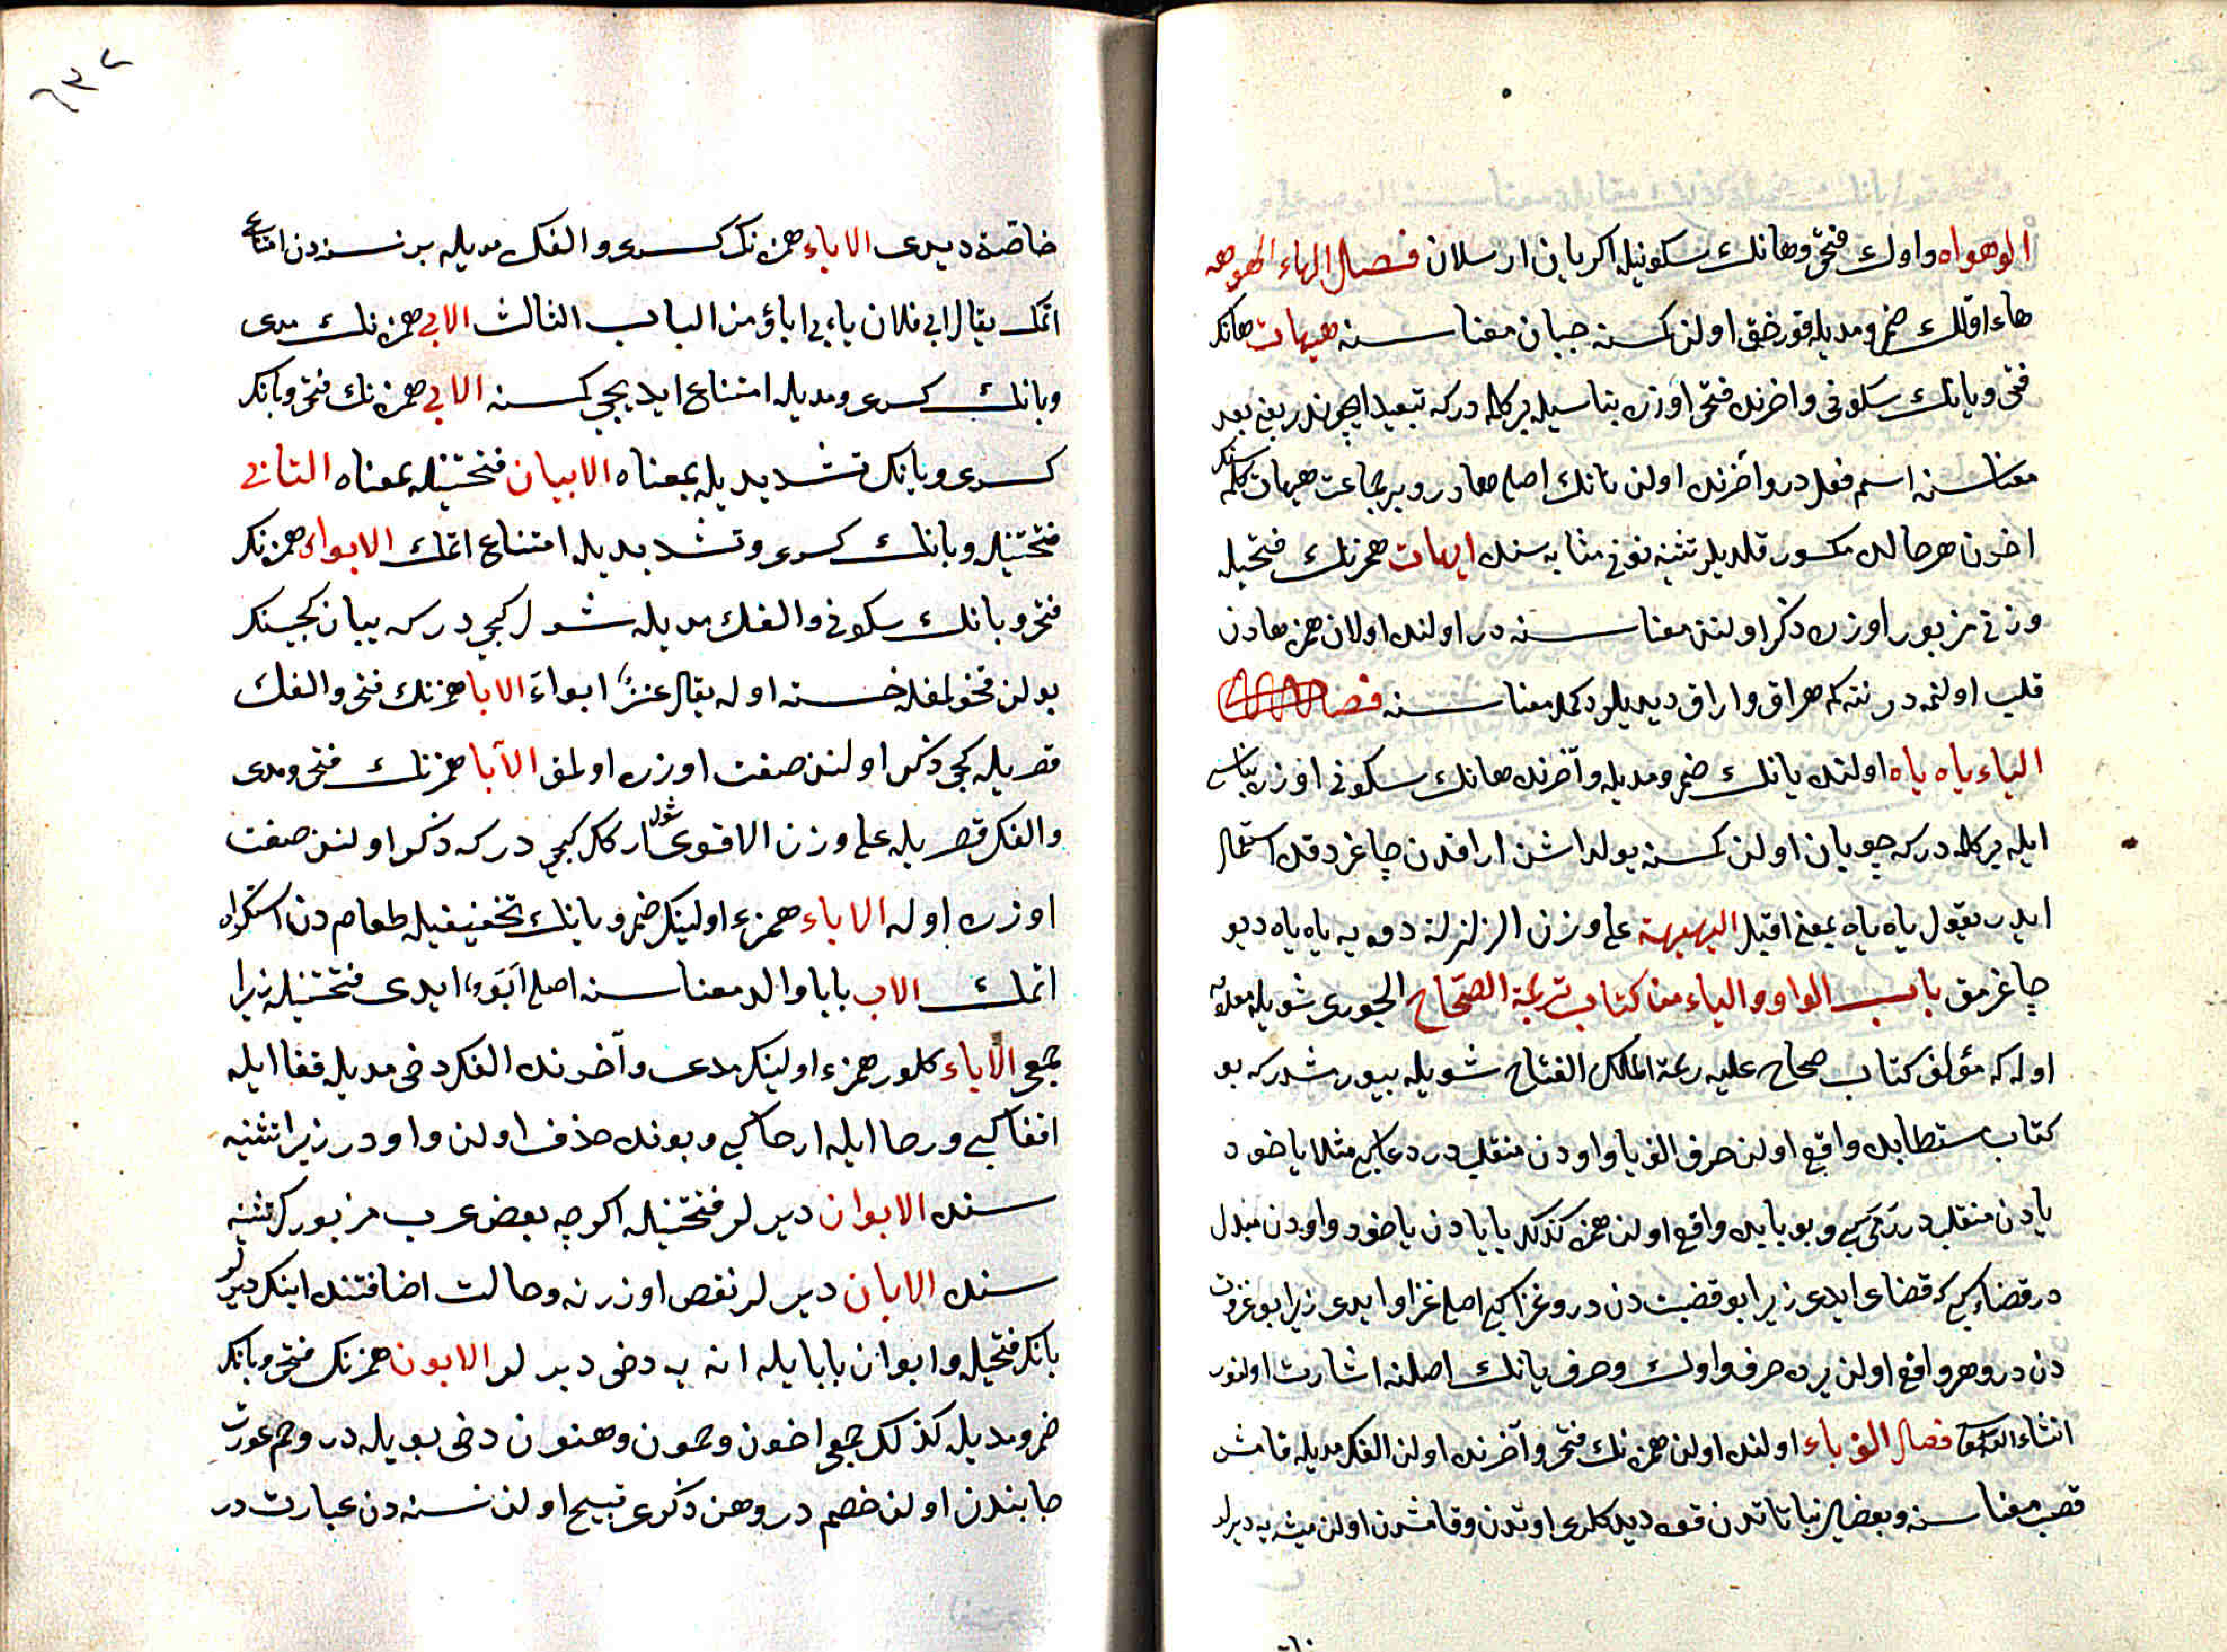 الوهواه واوك فتحى وهانك سكونيله اكريان ارسلان فصل الهاء الهوهه
هاء اولك ضم ومديله قورخق اولن كمسنه جبان معناسنه هيهات هانك
فتحى ويانك سكونى واخرنده فتحى اوزره بناسيله بر كلمه دركه تبعيد ايچوندر يعنى بعد
معناسنه اسم فعلدر وآخرنده اولن تانك اصلى هادر وبر جماعت هيهات كلمه سنك
اخرن هر حالده مكسور قلديلر تثنيه نونى مثابه سنده ايهات همزنك فتحيله
وزنى مزبور اوزره ذكر اولنن معناسنه در اولنده اولان همزه هادن
قلب اولنمه در نته كه هراق واراق ديديلر دكمك معناسنه فصل
الياء ياه ياه اولنده يانك ضم ومديله وآخرنده هانك سكونى اوزره بناسى
ايله بر كلمه دركه چوپان اولن كمسنه يولداشن اراقدن چاغردقده استعمال
ايدر يقول ياه ياه بمعنى اقبل اليهيهة على وزن الزلزلة دوه يه ياه ياه ديو
چاغرمق باب الواو والياء من كتاب ترجمة الصحاح الجوهرى شويله معلوم
اوله كه مؤلف كتاب صحاح عليه رحمة المالك الفتاح شويله بيورمشدر كه بو
كتاب مستطابده واقع اولن حرف الف يا واودن منقلبدر دعا كبى مثلا ياخود
يادن منقلبدر رمى كبى وبو بابده واقع اولن همزه كذلك يا يادن ياخود واودن مبدل
در قضاء كبى كه قضاى ايدى زيرا بو قضيت دن در وغزا كبى اصلى غزاو ايدى زيرا بو غزوت
دن در وهر واقع اولن يرده حرف واوك وحرف يانك اصلنه اشارت اولنور
انشاء الله تعالى فصل الف اباء اولنده اولن همزه نك فتحى وآخرنده اولن الفك مديله قامش
قصب معناسنه وبعضيلر نباتاتدن قوه ديدكلرى اوتدن وقامشدن اولن ميشه يه ديرلر
٦٣٢
خاصة ديدى الاباء همزه نك كسرى والفك مديله بر نسنه دن امتناع
اتمك يقال ابى فلان يابى اباؤ من الباب الثالث الابى همزه نك مدى
وبانك كسرى ومديله امتناع ايديجى كمسنه الابى همزه نك فتحى وبانك
كسرى ويانك تشديديله بمعناه الابيان فتحتينله بمعناه التابى
فتحتينله وبانك كسرى وتشديديله امتناع اتمك الابواء همزه نك
فتحى وبانك سكونى والفك مديله شول كچى دركه يبان كچيسنك
بولن قخولمغله خسته اوله يقال عنز ابواء الابا همزنك فتحى والفك
قصريله كچى ذكر اولنن صفت اوزره اولمق الآبا همزنك فتحى ومدى
والفك قصريله على وزن الاقوى شول اركك كچى دركه ذكر اولنن صفت
اوزره اوله الاباء همزه اولينك ضم وبانك تخفيفيله طعامدن استكراه
اتمك الاب بابا والد معناسنه اصلى ابو ايدى فتحتينله زيرا
جمعى الآباء كلور همزه اولينك مدى وآخرنده الفك دخى مديله قفا ايله
اقفا كبى ورحا ايله ارحا كبى وبوندن حذف اولن واودر زيرا تثنيه
سنده الابوان ديرلر فتحتينله اكرچه بعض عرب مزبورك تثنيه
سنده الابان ديرلر نقص اوزرنه وحالت اضافتنده ابيك ديرلر
بانك فتحيله وابوان بابايله انه يه دخى ديرلر الابون همزنك فتحى وبانك
ضم ومديله كذلك جمعى اخون وحمون وهنون دخى بويله در وحم عورت
جانبندن اولن خصم در وهن ذكرى قبيح اولن نسنه دن عبارت در